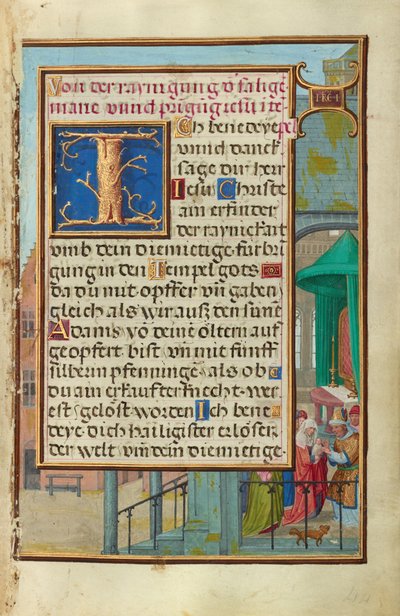 Von der raynigung d' salige
marie vnnd pringūg jesu i te-
pel
Ich benedeye
vnnd danck
sage dir herr
Iesu Christe
ain erfinder
der raynickait
vmb dein diemietige fürbrin
gung in den Tempel gots
da du mit opffer vn̄ gaben
gleich als wir auß den sunē
Adams vō deinē öltern auf
geopfert bist vn̄ mit fünff
silberin pfenningē als ob
du ain erkaufter knecht wer
est gelöst worden Ich bene
deye dich hailigister erlöser
der welt vn̄ dein diemietige